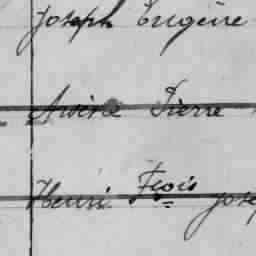 Joseph Eugène
Pierre
Henri Fçois Jose